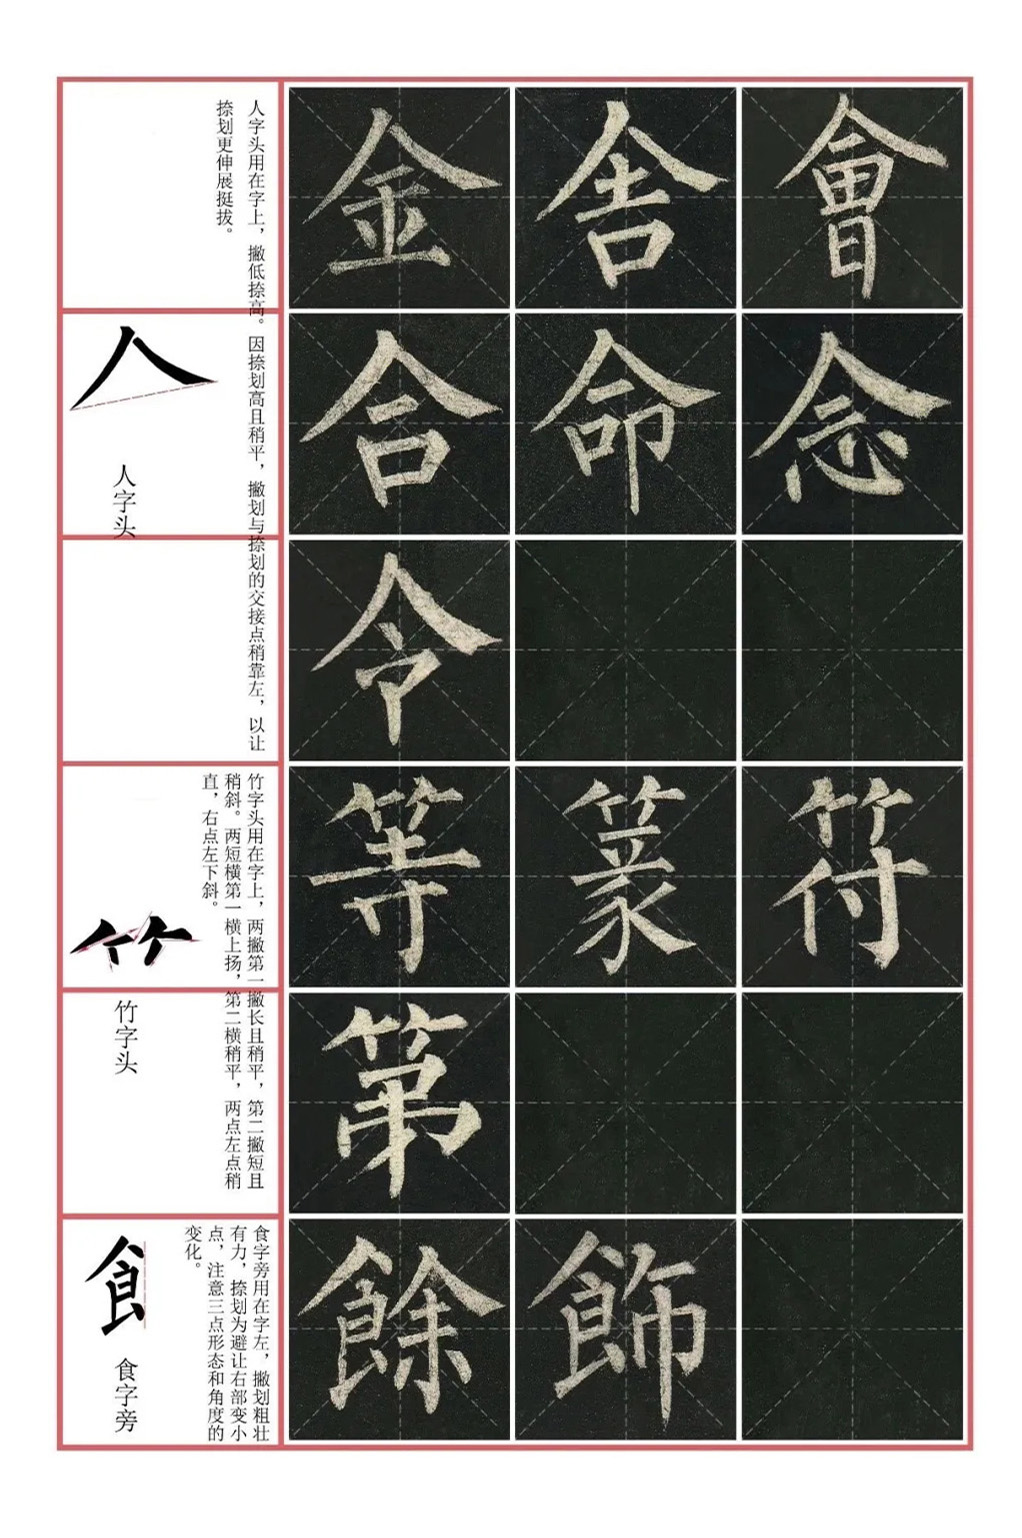 人字头用在字上，撇低捺高。因捺划高且稍平，撇划与捺划的交接点稍靠左，以让
捺划更伸展挺拔。
人
人字头
金舍會
合命念
令
竹字头用在字上，两撇第一撇长且稍平，第二撇短且
稍斜。两短横第一横上扬，第二横稍平，两点左点稍
直，右点左下斜。
竹字头
等篆符
第
食字旁用在字左，撇划粗壮
有力，捺划为避让右部变小
点，注意三点形态和角度的
变化。
飠
食字旁
餘飾